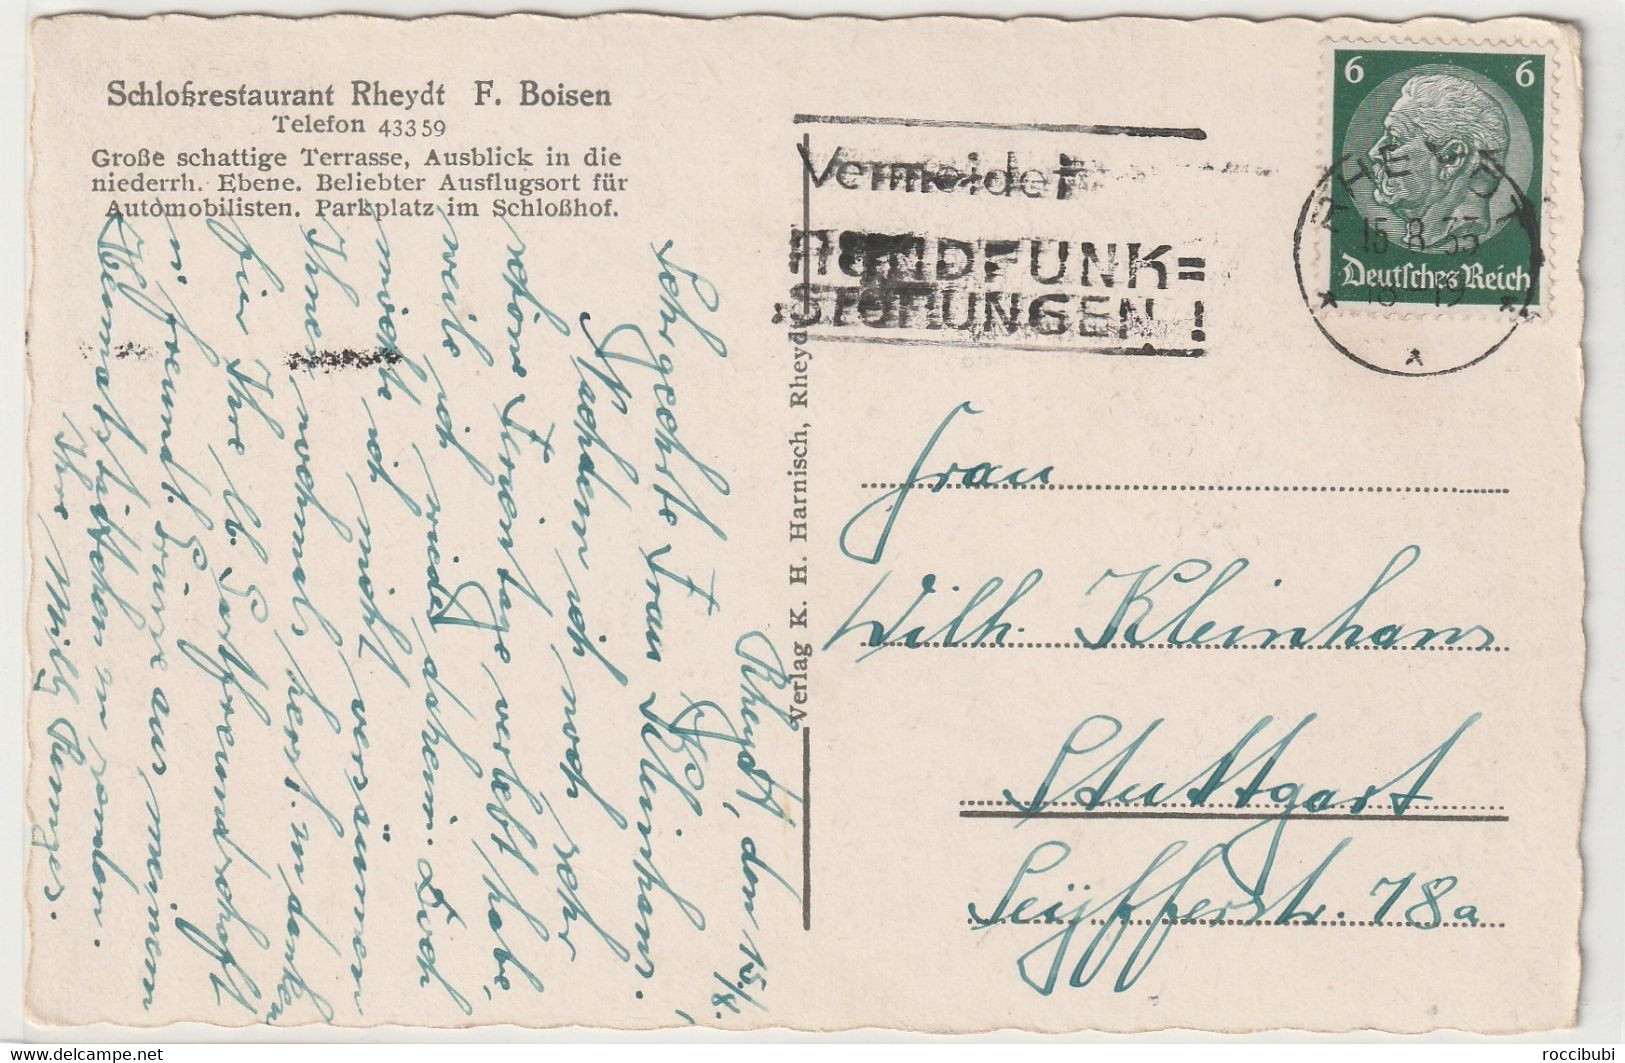 Schloßrestaurant Rheydt F. Boisen
Telefon 43359
Große schattige Terrasse, Ausblick in die
niederrh. Ebene. Beliebter Ausflugsort für
Automobilisten. Parkplatz im Schloßhof.
Vermeidet
RUNDFUNK=
STÖRUNGEN!
RHEYDT
15.8.33
18-19
6 6
Deutsches Reich
Verlag K. H. Harnisch, Rheydt
Rheydt, den 15./8.
Sehr geehrte Frau Kleinhans.
Nachdem ich noch sehr
schöne Ferientage verlebt habe,
weile ich wieder daheim. Doch
möchte ich nicht versäumen
Ihnen nochmals herzl. zu danken
für Ihre lb. Gastfreundschaft
u. freundl. Grüsse aus meinem
Heimatstädtchen zu senden.
Ihre Milly
Frau
Wilh. Kleinhans
Stuttgart
Seyfferstr. 78a
roccibubi